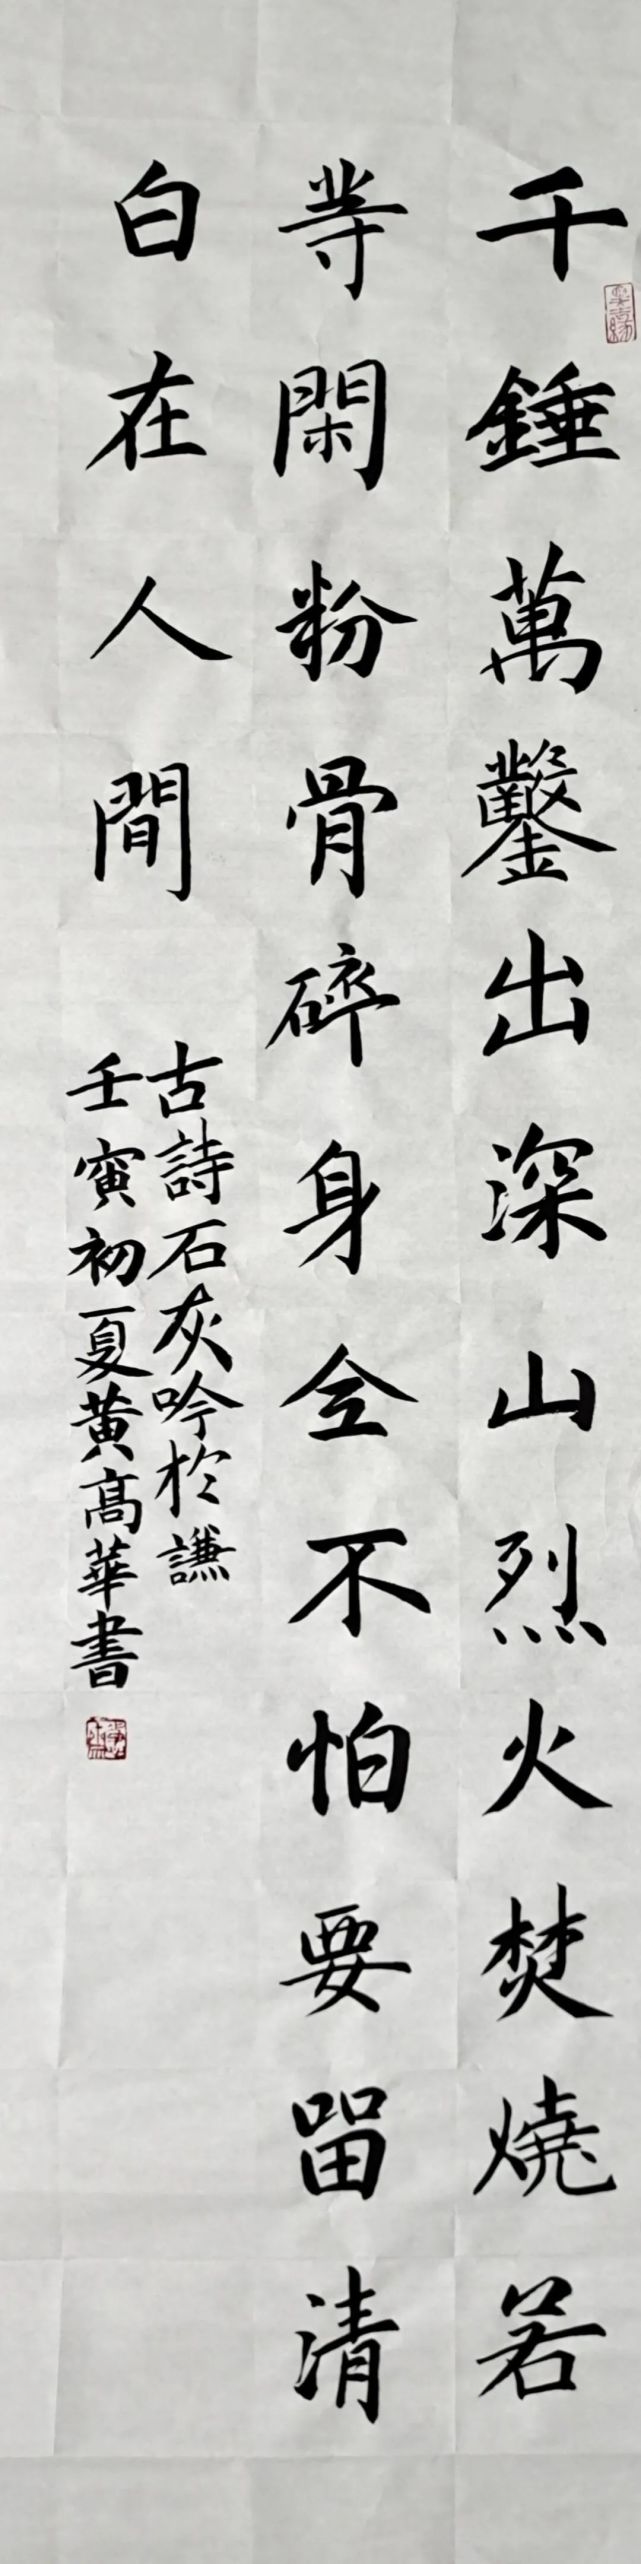 千錘萬鑿出深山烈火焚燒若
等閑粉骨碎身全不怕要留清
白在人間
古詩石灰吟於謙
壬寅初夏黃高華書